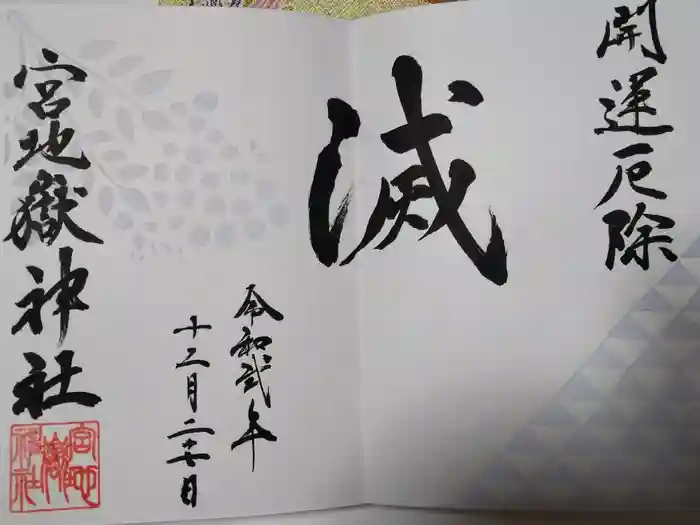 開運厄除
滅
令和弐年
十二月二十七日
宮地嶽神社
宮地嶽神社